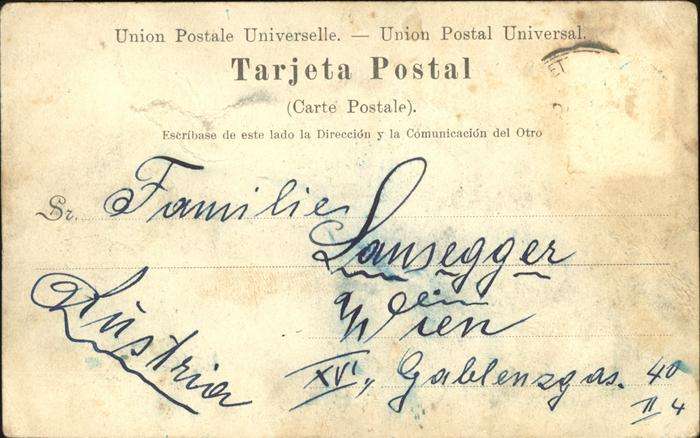 Union Postale Universelle. — Union Postal Universal.
Tarjeta Postal
(Carte Postale).
Escríbase de este lado la Dirección y la Comunicación del Otro
Sr. Familie
Lansegger
in
Wien
Austria
XVI., Gablenzgas. 40
II 4